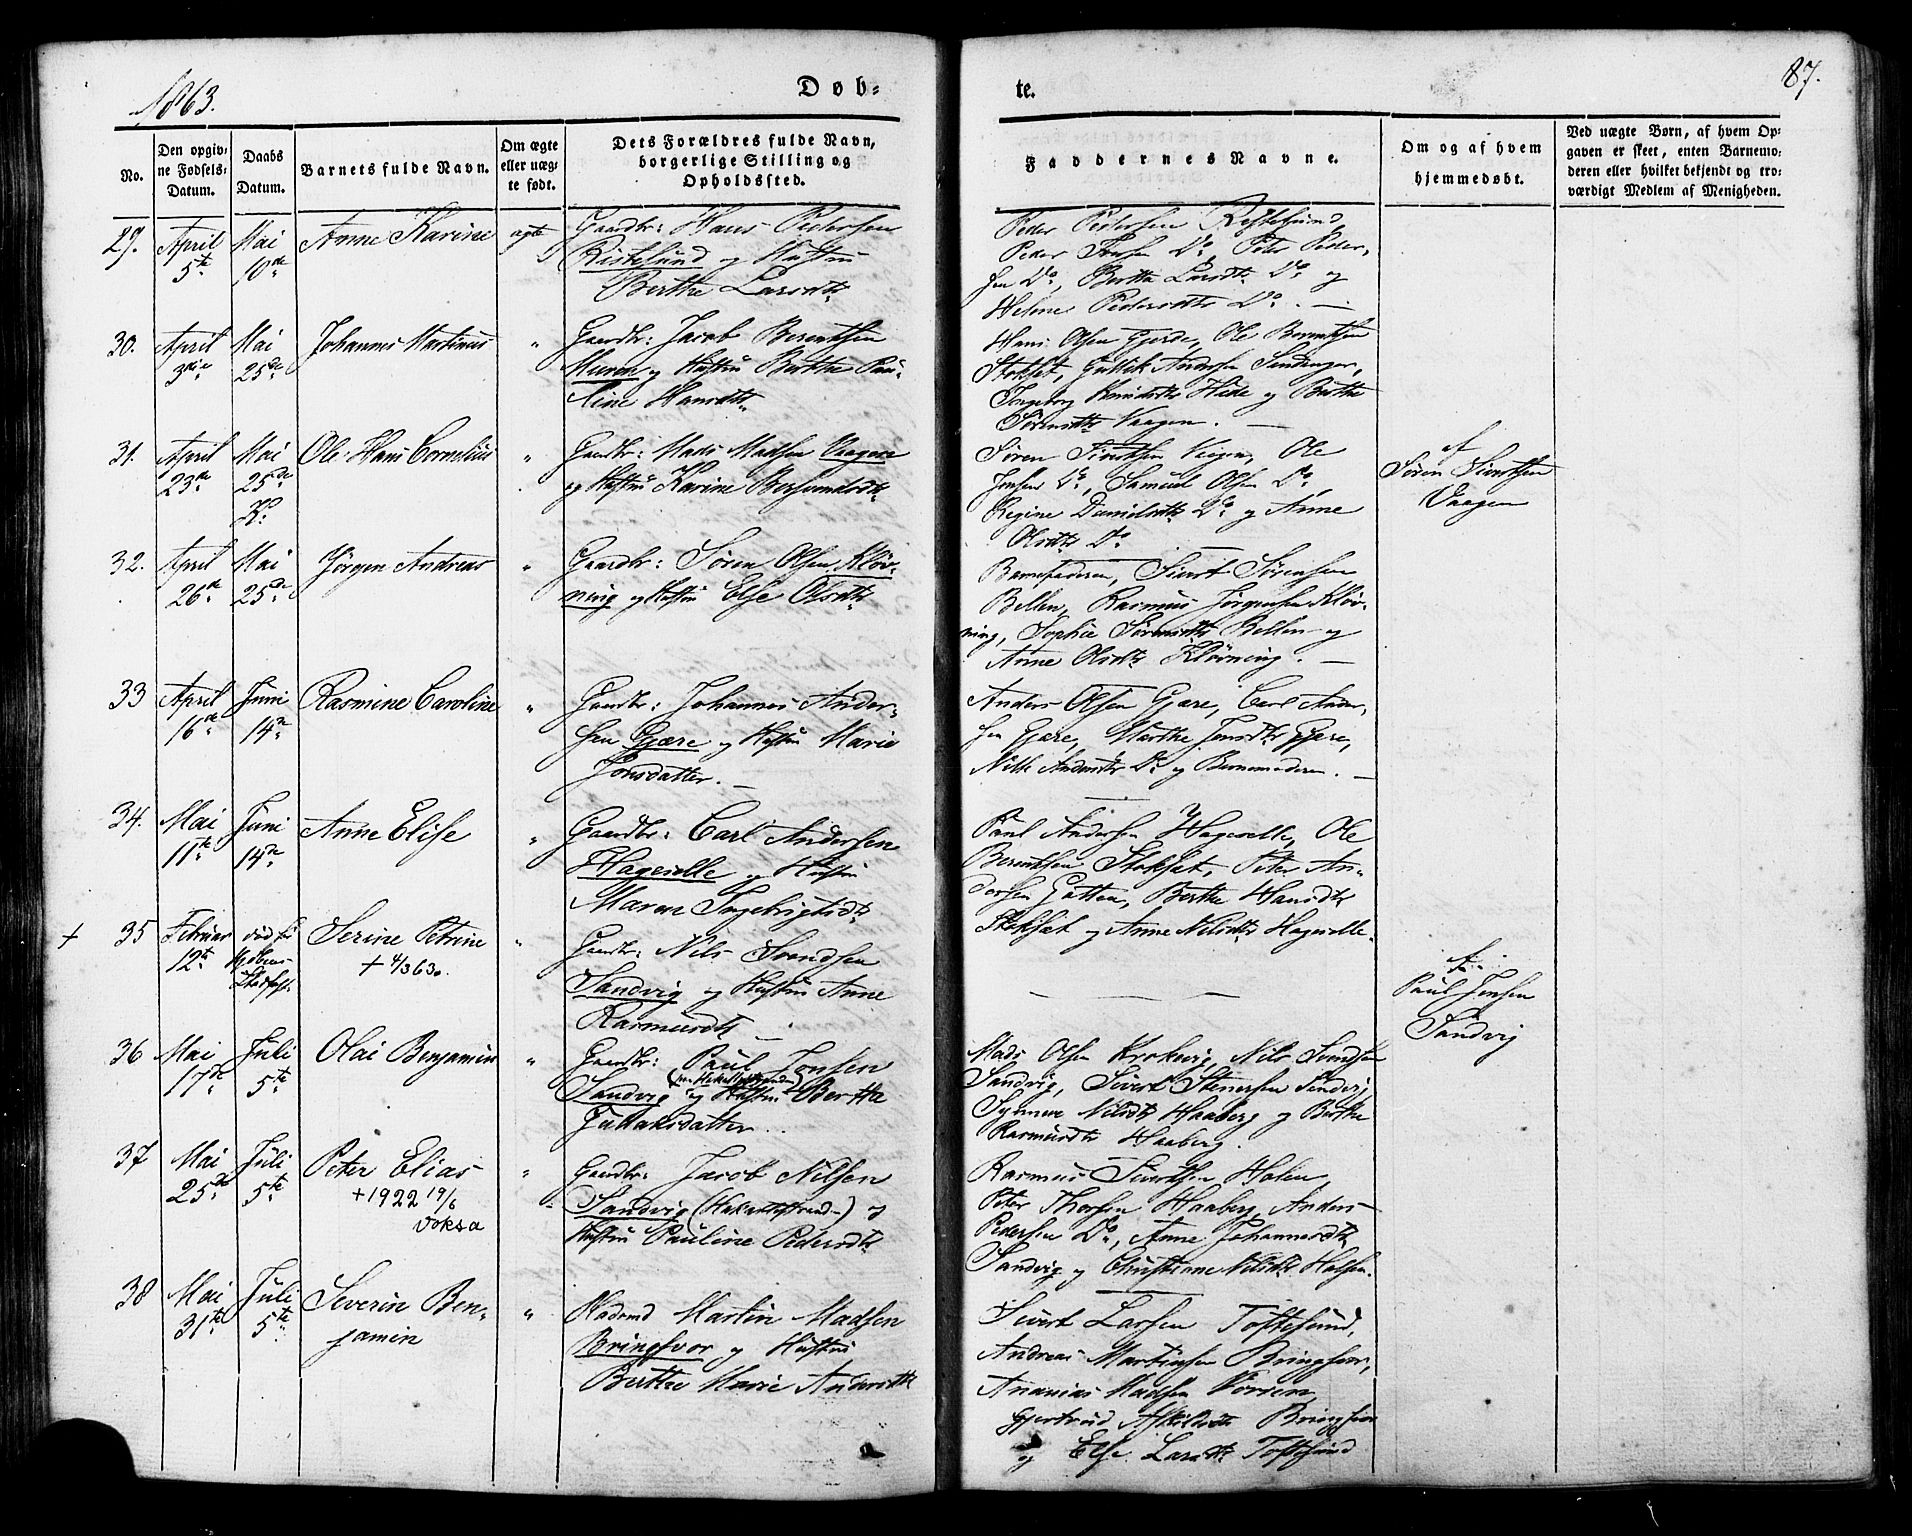 1863.
Døb-
te.
87.
No.
Den opgiv-
ne Fødsels-
Datum.
Daabs
Datum.
Barnets fulde Navn.
Om ægte
eller uæg-
te født.
Dets Forældres fulde Navn,
borgerlige Stilling og
Opholdssted.
Faddernes Navne.
Om og af hvem
hjemmedøbt.
Ved uægte Børn, af hvem Op-
gaven er skeet, enten Barnemo-
deren eller hvilket bekjendt og tro-
værdigt Medlem af Menigheden.
29. April 5te Mai 10de Anne Karine ægte
Gaardbr: Hans Pedersen
Ristesund og Hustru
Berthe Larsdtr
Peder Pedersen Ristesund,
Peder Jensen Do, Peter Peder-
sen Do, Berthe Larsdtr Do og
Helene Pedersdtr Do. —
30. April 3die Mai 25de Johannes Martinus "
Gaardbr: Jacob Berentsen
Muren og Hustru Berthe Pau-
line Hansdtr
Hans Olsen Gjerde, Ole Berentsen
Stokset, Andersen
Ingeborg Hide og Berthe
Sørensdtr Vaagen. —
31. April 23de Mai 25de K: Ole Hans Cornelius "
Gaardbr: Mads Madsen Vaagene
og Hustru Karine
Søren Sivertsen Vaagen, Ole
Jensen Do, Samuel Olsen Do,
Regine Danielsdtr Do og Anne
Olsdtr Do
af
Søren Sivertsen
Vaagen
32. April 26de Mai 25de Jørgen Andreas "
Gaardbr: Søren Olsen Kløv-
ning og Hustru Else Olsdtr
Barnefaderen, Sivert Sørensen
Bellen, Rasmus Jørgensen Kløv-
ning, Sophie Sørensdtr Bellen og
Anne Olsdtr Kløvning. —
33 April 16de Juni 14de Rasmine Caroline "
Gaardbr: Johannes Ander-
sen Gjære og Hustru Marie
Jonsdatter. —
Anders Olsen Gjære, Carl Ander-
sen Gjære, Marthe Jensdtr Gjære,
Andersdtr Do og Barnemoderen. —
34. Mai 11te Juni 14de Anne Elise "
Gaardbr: Carl Andersen
Hageselle og Hustru
Maren Ingebrigtsdtr
Paul Andersen Hageselle, Ole
Berentsen Stokset, Peter An-
dersen Gotten, Berthe Hansdtr
Stokset og Anne Nilsdtr Hageselle.
+ 35 Februar 12te død før
Kjøben-
Stadfest. Serine Petrine "
+ 4/3 63.
Gaardbr: Nils Svendsen
Sandvig og Hustru Anne
Rasmusdtr —
af
Paul Jensen
Sandvig
36 Mai 17de Juli 5te Olai Benjamin "
Gaardbr: Paul Jonsen
Sandvig og Hustru Berthe
Mads Olsen Krokvig, Nils Svendsen
Sandvig, Sivert Stenersen Sandvig,
Synneve Nilsdtr Haaberg og Berthe
Rasmusdtr Haaberg.
37 Mai 25de Juli 5te Peter Elias "
+ 1922 19/6
Voksa
Gaardbr: Jacob Nilsen
Sandvig (Hakallestrand) og
Hustru Pauline Pedersdtr
Rasmus Sivertsen Holen,
Peter Thorsen Haaberg, Anders
Pedersen Do, Anne Johannesdtr
Sandvig og Christiane Nilsdtr Halsen.
38 Mai 31te Juli 5te Severin Ben-
jamin "
Husmd Martin Madsen
Bringsvor og Hustru
Berthe Marie Andersdtr
Sivert Larsen Toftesund,
Andreas Martinsen Bringsvor,
Ananias Madsen Vorren,
Gjertrud Bringsvor
og Else Larsdtr Toftesund